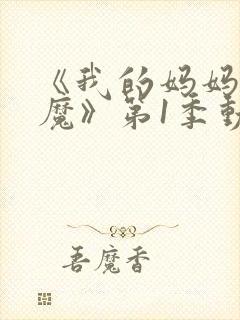 《我的妈妈
魔》第1季動
吾魔香